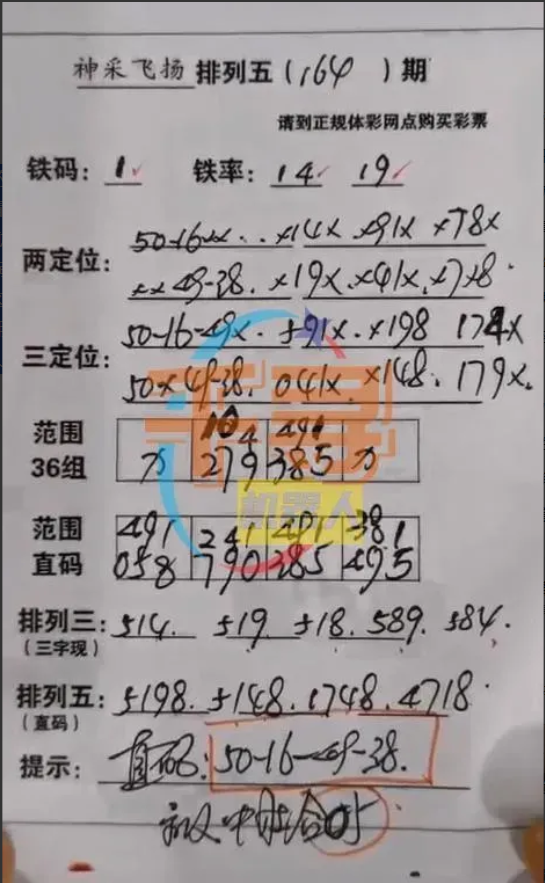 神采飞扬 排列五(164)期
请到正规体彩网点购买彩票
铁码: 1 铁率: 14 19
两定位: 50-16xx.. x14x x91x x78x
xx49-38. x19x. x41x. x7x8.
三定位: 50-16-49x. 591x. x198 174x
50x49-38. 041x. x148. 179x.
范围 10 4 491
36组 279 385
范围 491 241 491 381
直码 058 790 385 495
排列三: 514. 519 518. 589. 584.
(三字现)
排列五: 5198. 5148. 1748. 4718.
(直码)
提示: 直码: 50-16-49-38.
机器人